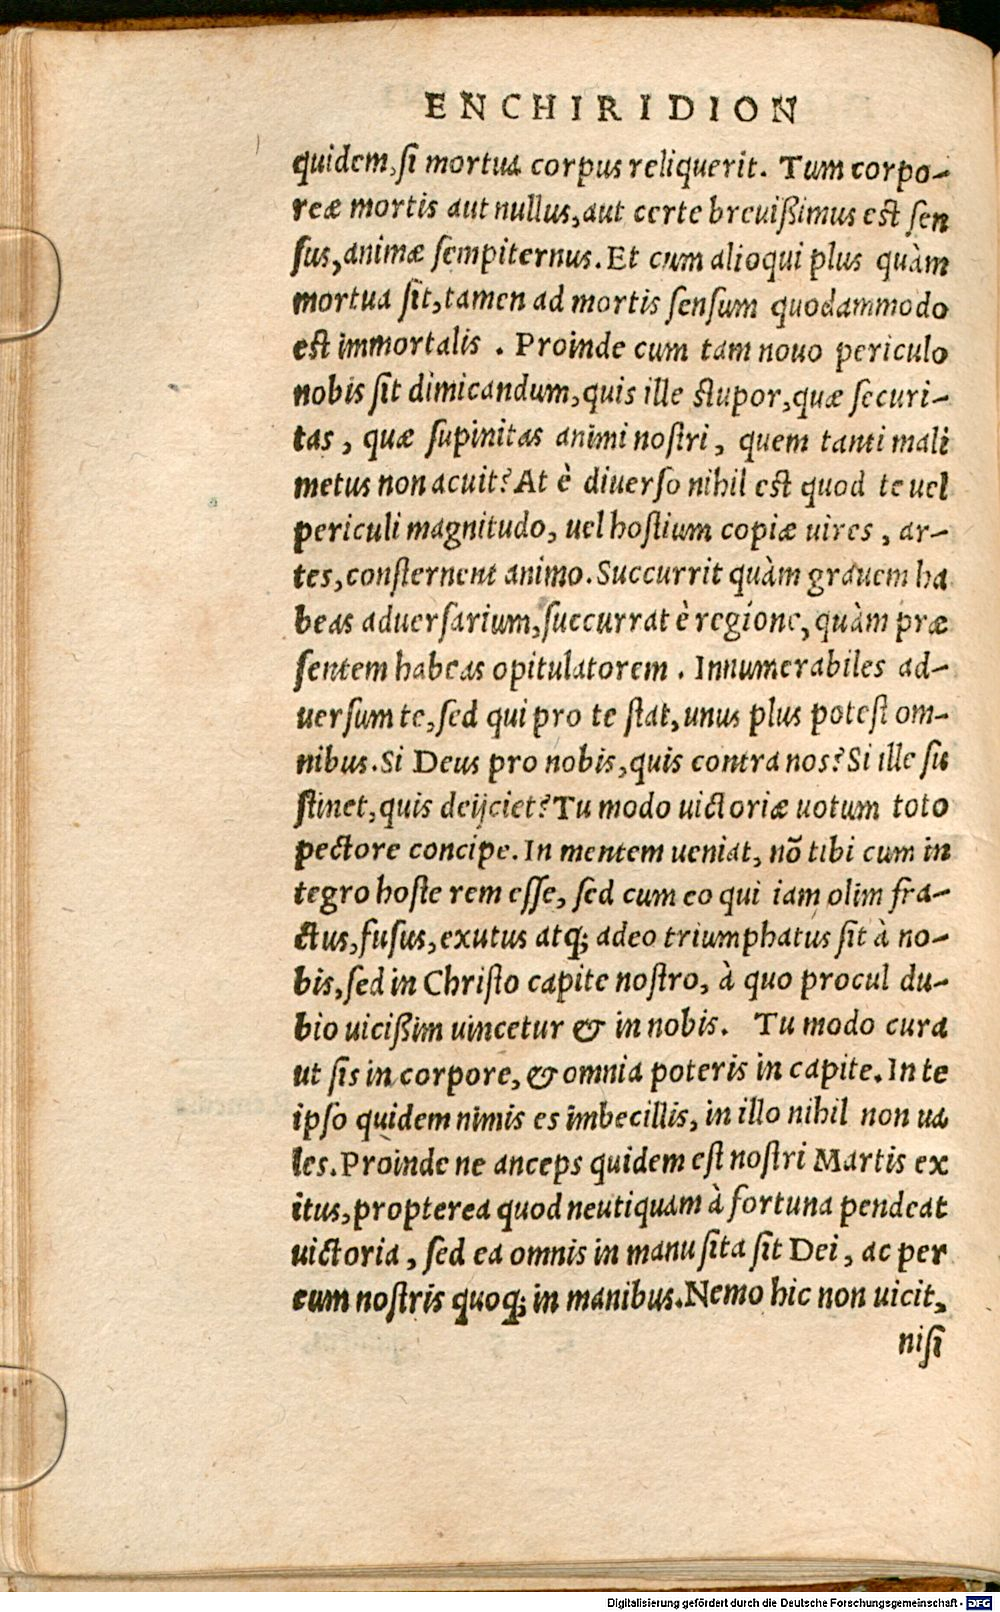 ENCHIRIDION
quidem, si mortua corpus reliquerit. Tum corpo-
reæ mortis aut nullus, aut certe breuißimus est sen
sus, animæ sempiternus. Et cum alioqui plus quàm
mortua sit, tamen ad mortis sensum quodammodo
est immortalis . Proinde cum tam nouo periculo
nobis sit dimicandum, quis ille stupor, quæ securi-
tas , quæ supinitas animi nostri, quem tanti mali
metus non acuit? At è diuerso nihil est quod te uel
periculi magnitudo, uel hostium copiæ uires , ar-
tes, consternent animo. Succurrit quàm grauem ha
beas aduersarium, succurrat è regione, quàm præ
sentem habeas opitulatorem . Innumerabiles ad-
uersum te, sed qui pro te stat, unus plus potest om-
nibus. Si Deus pro nobis, quis contra nos? Si ille su
stinet, quis deijciet? Tu modo uictoriæ uotum toto
pectore concipe. In mentem ueniat, nõ tibi cum in
tegro hoste rem esse, sed cum eo qui iam olim fra-
ctus, fusus, exutus atq; adeo triumphatus sit à no-
bis, sed in Christo capite nostro, à quo procul du-
bio uicißim uincetur & in nobis. Tu modo cura
ut sis in corpore, & omnia poteris in capite. In te
ipso quidem nimis es imbecillis, in illo nihil non ua
les. Proinde ne anceps quidem est nostri Martis ex
itus, propterea quod neutiquam à fortuna pendeat
uictoria , sed ea omnis in manu sita sit Dei , ac per
eum nostris quoq; in manibus. Nemo hic non uicit,
nisi
Digitalisierung gefördert durch die Deutsche Forschungsgemeinschaft - DFG